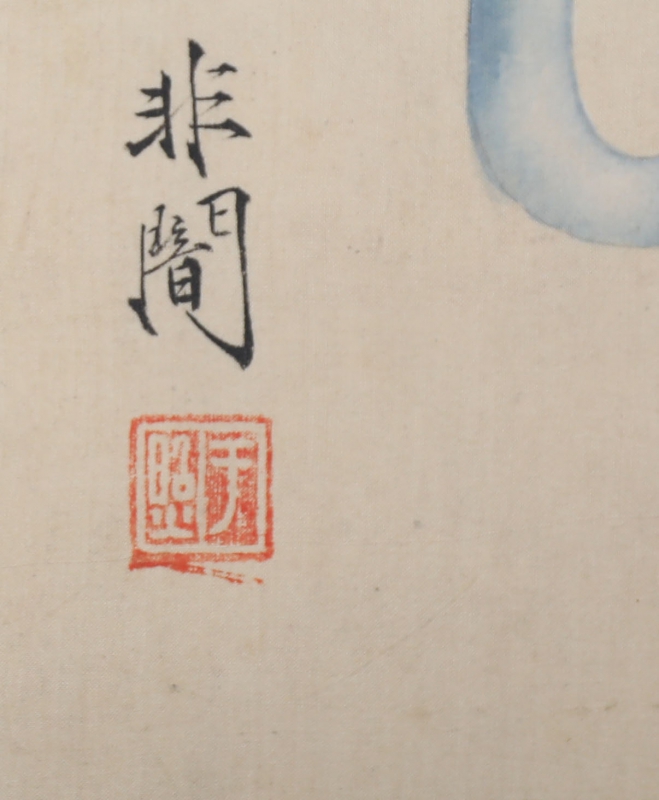 非闇
于照